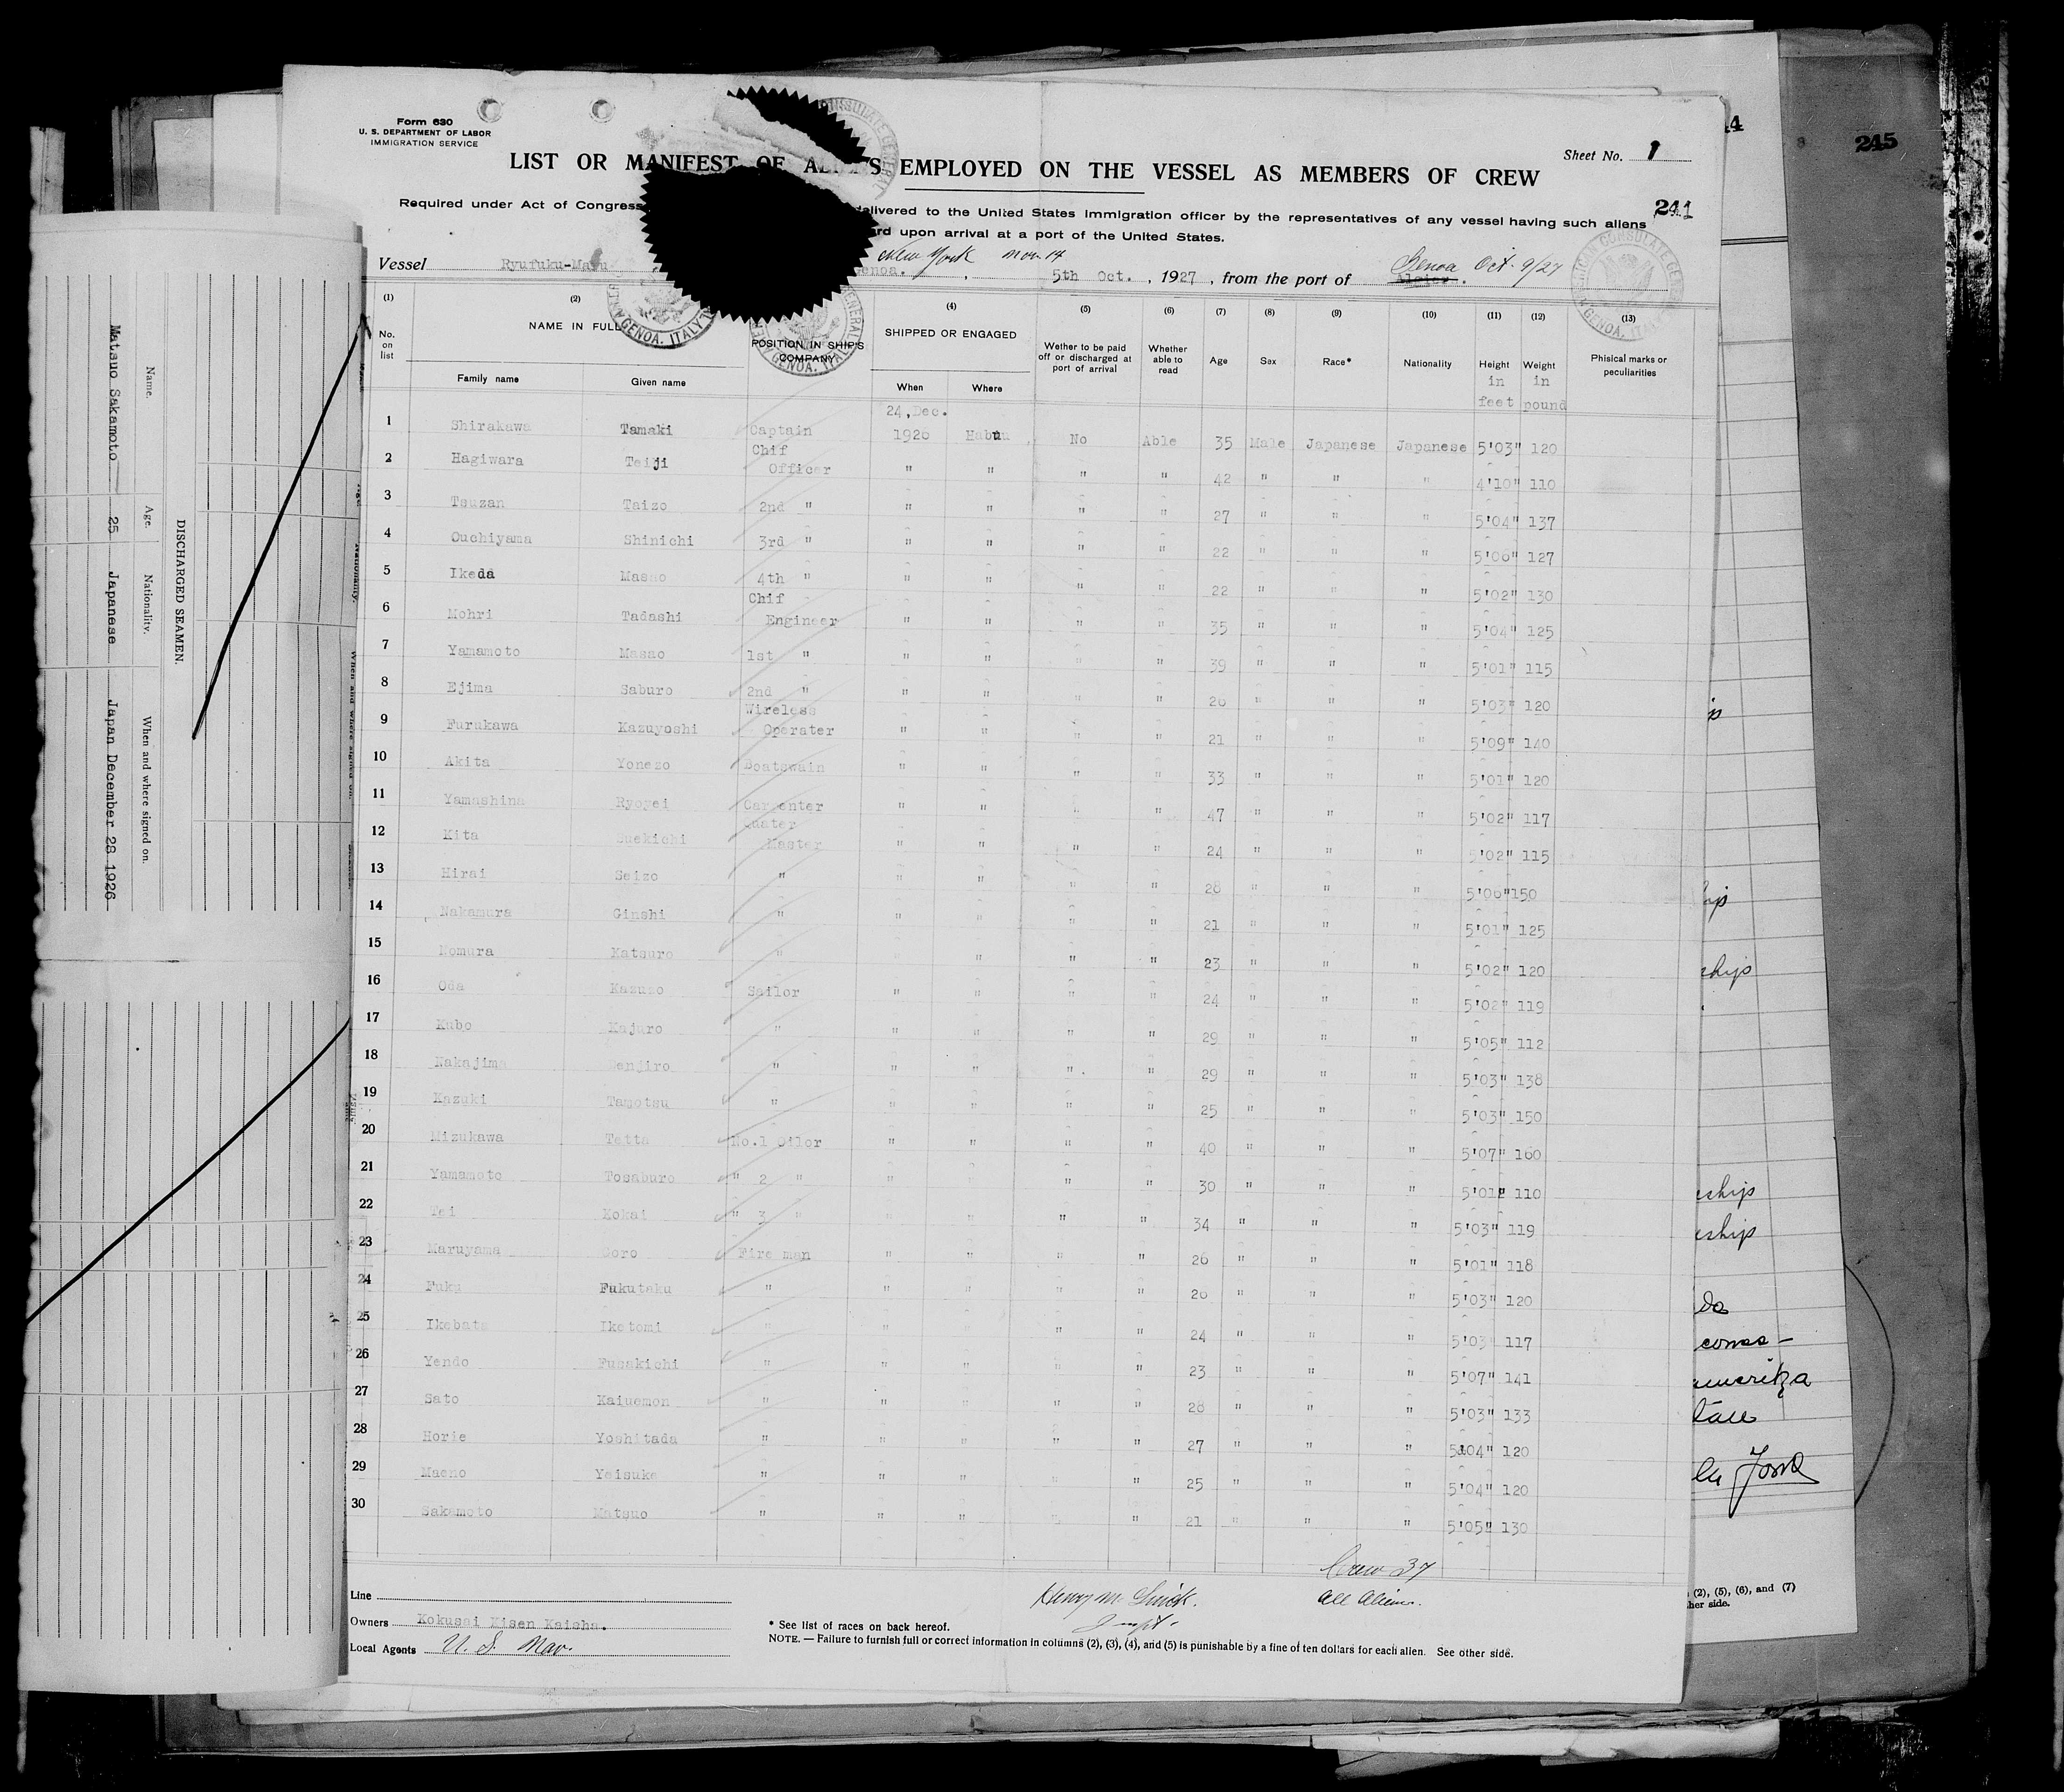 Form 630
U. S. DEPARTMENT OF LABOR
IMMIGRATION SERVICE
Sheet No. 1
LIST OR MANIFEST OF AL S EMPLOYED ON THE VESSEL AS MEMBERS OF CREW
241
Required under Act of Congress delivered to the United States Immigration officer by the representatives of any vessel having such aliens
rd upon arrival at a port of the United States.
New York Nov 14
Vessel Ryufuku-Maru Genoa. 5th Oct. , 1927 , from the port of Algier. Genoa Oct. 9/27
(1) (2) (4) (5) (6) (7) (8) (9) (10) (11) (12) (13)
No. on list NAME IN FULL POSITION IN SHIP'S COMPANY SHIPPED OR ENGAGED Wether to be paid off or discharged at port of arrival Whether able to read Age Sex Race* Nationality Height in feet Weight in pound Phisical marks or peculiarities
Family name Given name When Where
1 Shirakawa Tamaki Captain 24,Dec. 1926 Habuu No Able 35 Male Japanese Japanese 5'03" 120
2 Hagiwara Teiji Chif Officer " " " " 42 " " " 4'10" 110
3 Tsuzan Taizo 2nd " " " " " 27 " " " 5'04" 137
4 Ouchiyama Shinichi 3rd " " " " " 22 " " " 5'06" 127
5 Ikeda Masao 4th " " " " " 22 " " " 5'02" 130
6 Mohri Tadashi Chif Engineer " " " " 35 " " " 5'04" 125
7 Yamamoto Masao 1st " " " " " 39 " " " 5'01" 115
8 Ejima Saburo 2nd " " " " " 26 " " " 5'03" 120
9 Furukawa Kazuyoshi Wireless Operater " " " " 21 " " " 5'09" 140
10 Akita Yonezo Boatswain " " " " 33 " " " 5'01" 120
11 Yamashina Ryohei Carpenter " " " " 47 " " " 5'02" 117
12 Kita Suekichi Quater Master " " " " 24 " " " 5'02" 115
13 Hirai Seizo " " " " " 28 " " " 5'06" 150
14 Nakamura Ginshi " " " " " 21 " " " 5'01" 125
15 Nomura Katsuro " " " " 23 " " " 5'02" 120
16 Oda Kazuzo Sailor " " " " 24 " " " 5'02" 119
17 Kubo Kajuro " " " " " 29 " " " 5'05" 112
18 Nakajima Denjiro " " " " " 29 " " " 5'03" 138
19 Kazuki Tamotsu " " " " " 25 " " " 5'03" 150
20 Mizukawa Tetta No.1 Oilor " " " " 40 " " " 5'07" 160
21 Yamamoto Tosaburo " 2 " " " " " 30 " " " 5'01" 110
22 Tei Kokai " 3 " " " " " 34 " " " 5'03" 119
23 Maruyama Goro Fire man " " " " 26 " " " 5'01" 118
24 Fuku Fukutaku " " " " " 26 " " " 5'03" 120
25 Ikebata Iketomi " " " " " 24 " " " 5'03 117
26 Yendo Fusakichi " " " " " 23 " " " 5'07" 141
27 Sato Kaiuemon " " " " " 28 " " " 5'03" 133
28 Horie Yoshitada " " " " " 27 " " " 5'04" 120
29 Maeno Yeisuke " " " " " 25 " " " 5'04" 120
30 Sakamoto Matsuo " " " " " 21 " " " 5'05" 130
Crew 37
All Aliens.
Line
Owners Kokusai Kisen Kaisha.
Local Agents U. S. Nav.
Inspt.
* See list of races on back hereof.
NOTE. — Failure to furnish full or correct information in columns (2), (3), (4), and (5) is punishable by a fine of ten dollars for each alien. See other side.
DISCHARGED SEAMEN.
Name. Age. Nationality. When and where signed on.
Matsuo Sakamoto 25 Japanese Japan December 28 1926
245
(2), (5), (6), and (7)
her side.
GENOA. ITALY
CONSULATE GENERAL
AMERICAN CONSULATE GENERAL GENOA. ITALY